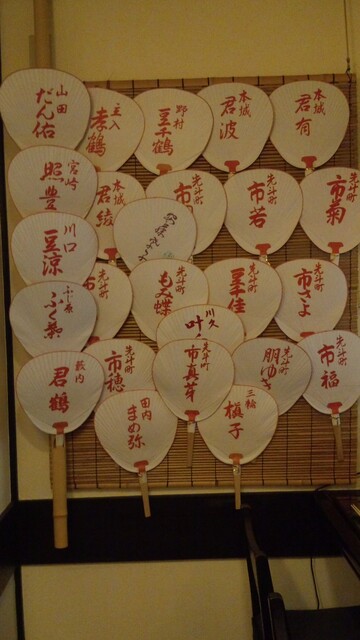 山田
だん佑
主入
孝鶴
野村
豆千鶴
本城
君波
本城
君有
宮崎
照豊
本城
君綾
先斗町
市
先斗町
市若
先斗町
市菊
川口
豆涼
先斗町
先斗町
もみ蝶
先斗町
豆佳
先斗町
市さよ
ふく葉
川久
叶久
藪内
君鶴
先斗町
市穂
先斗町
市真芽
先斗町
朋ゆき
先斗町
市福
田内
まめ弥
三輪
槇子